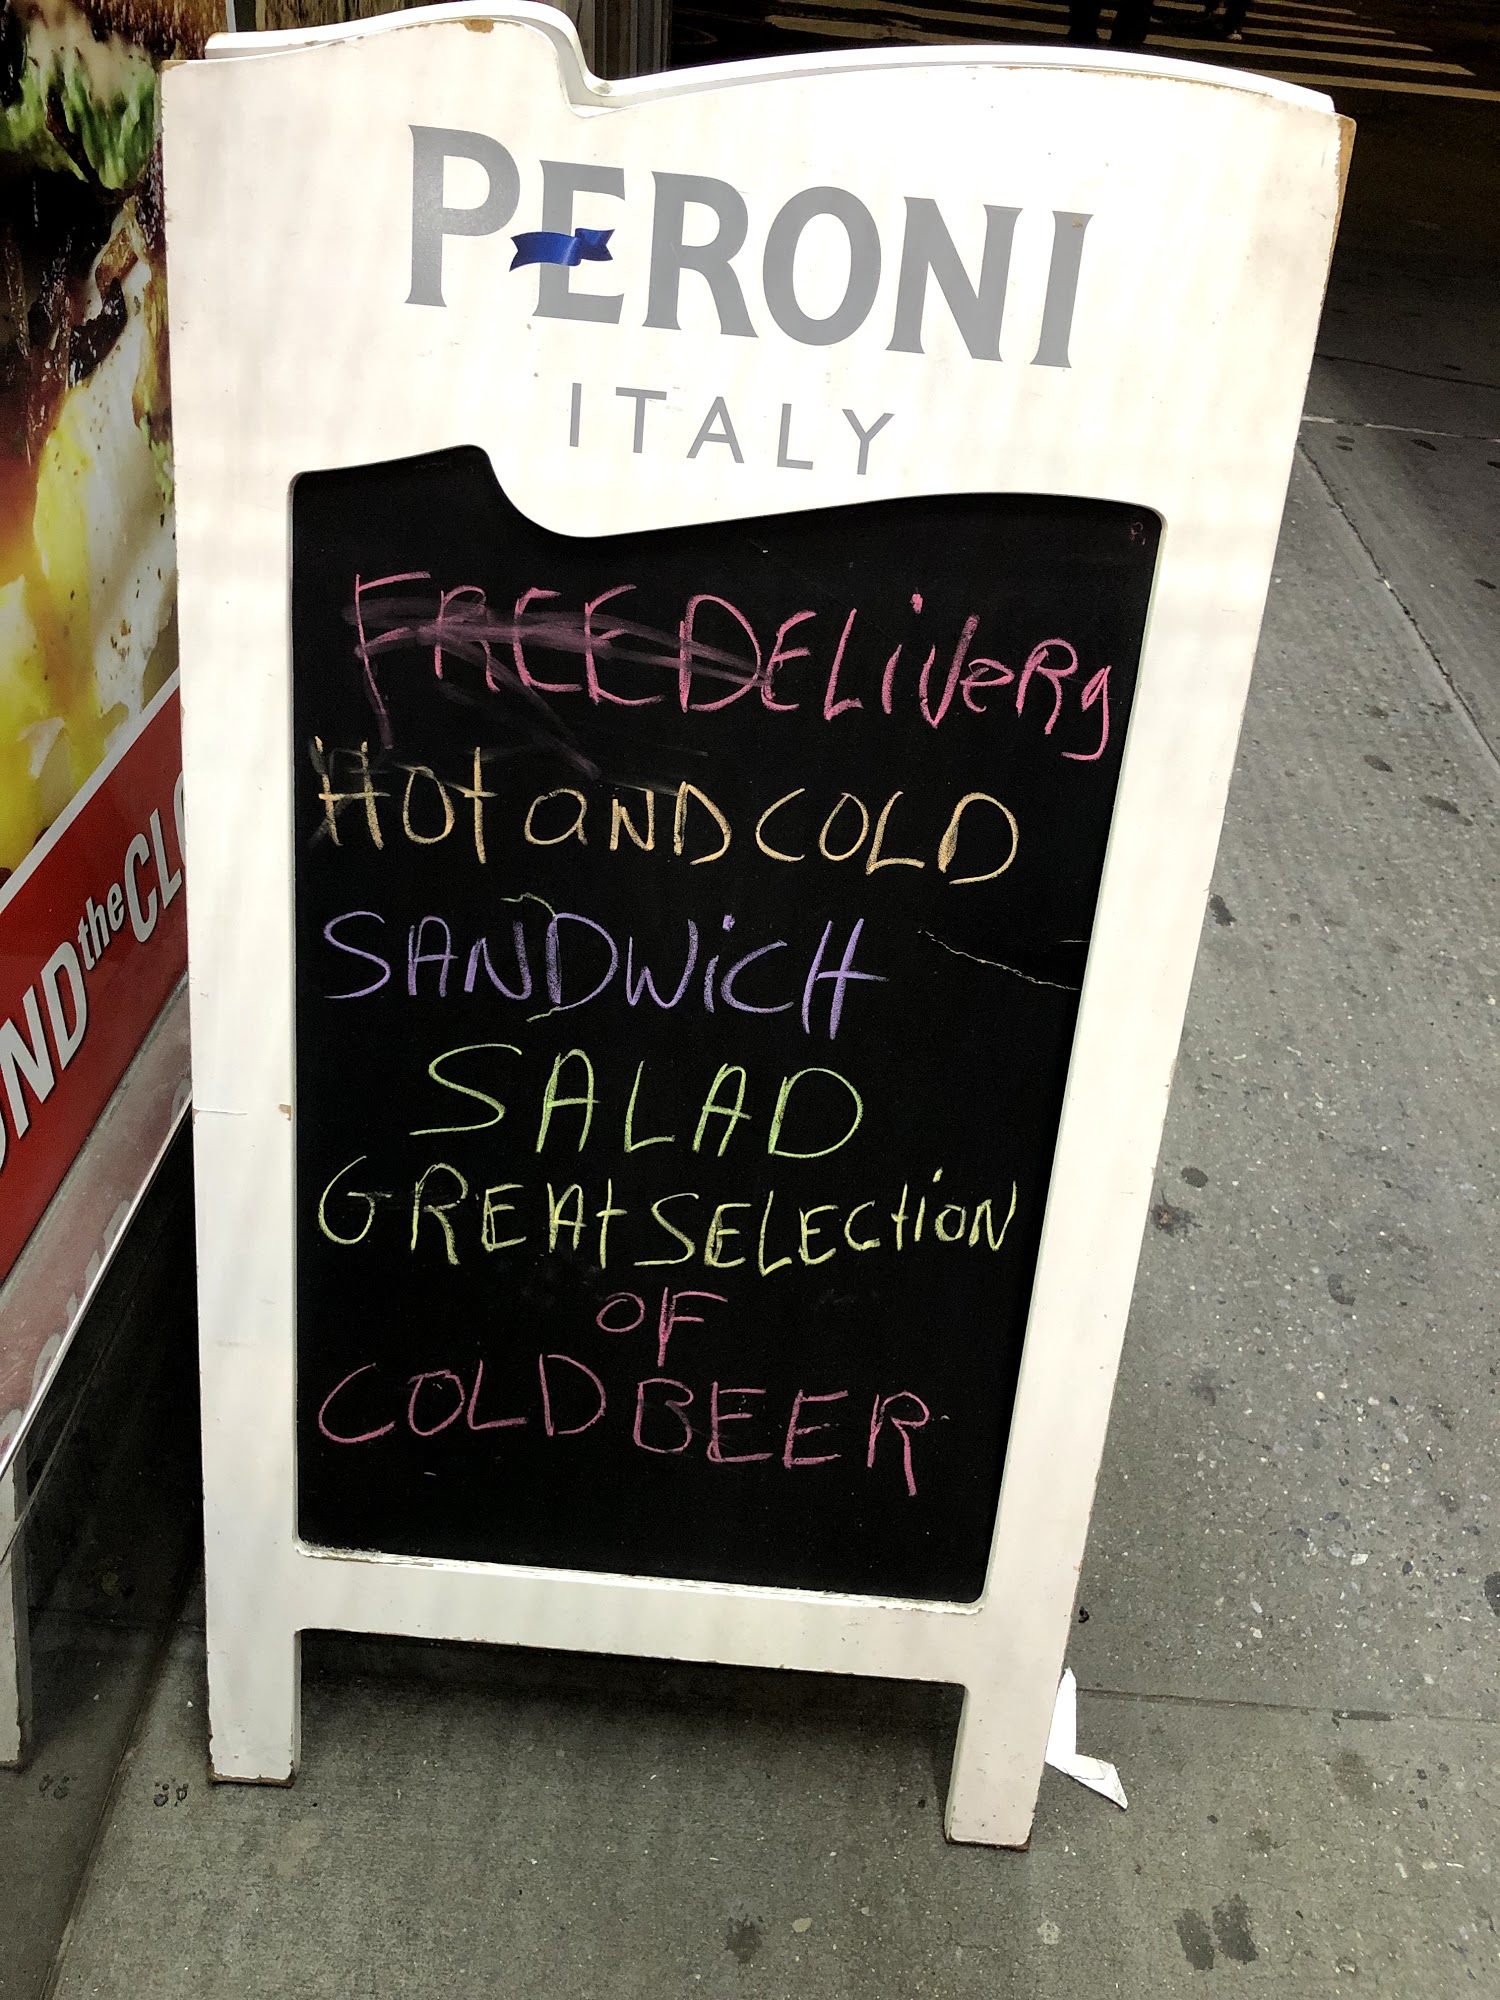 PERONI
ITALY
FREE DELiVeRy
HOt aND COLD
SANDWiCH
SALAD
GREAt SELECtiON
OF
COLD BEER
ND the CL